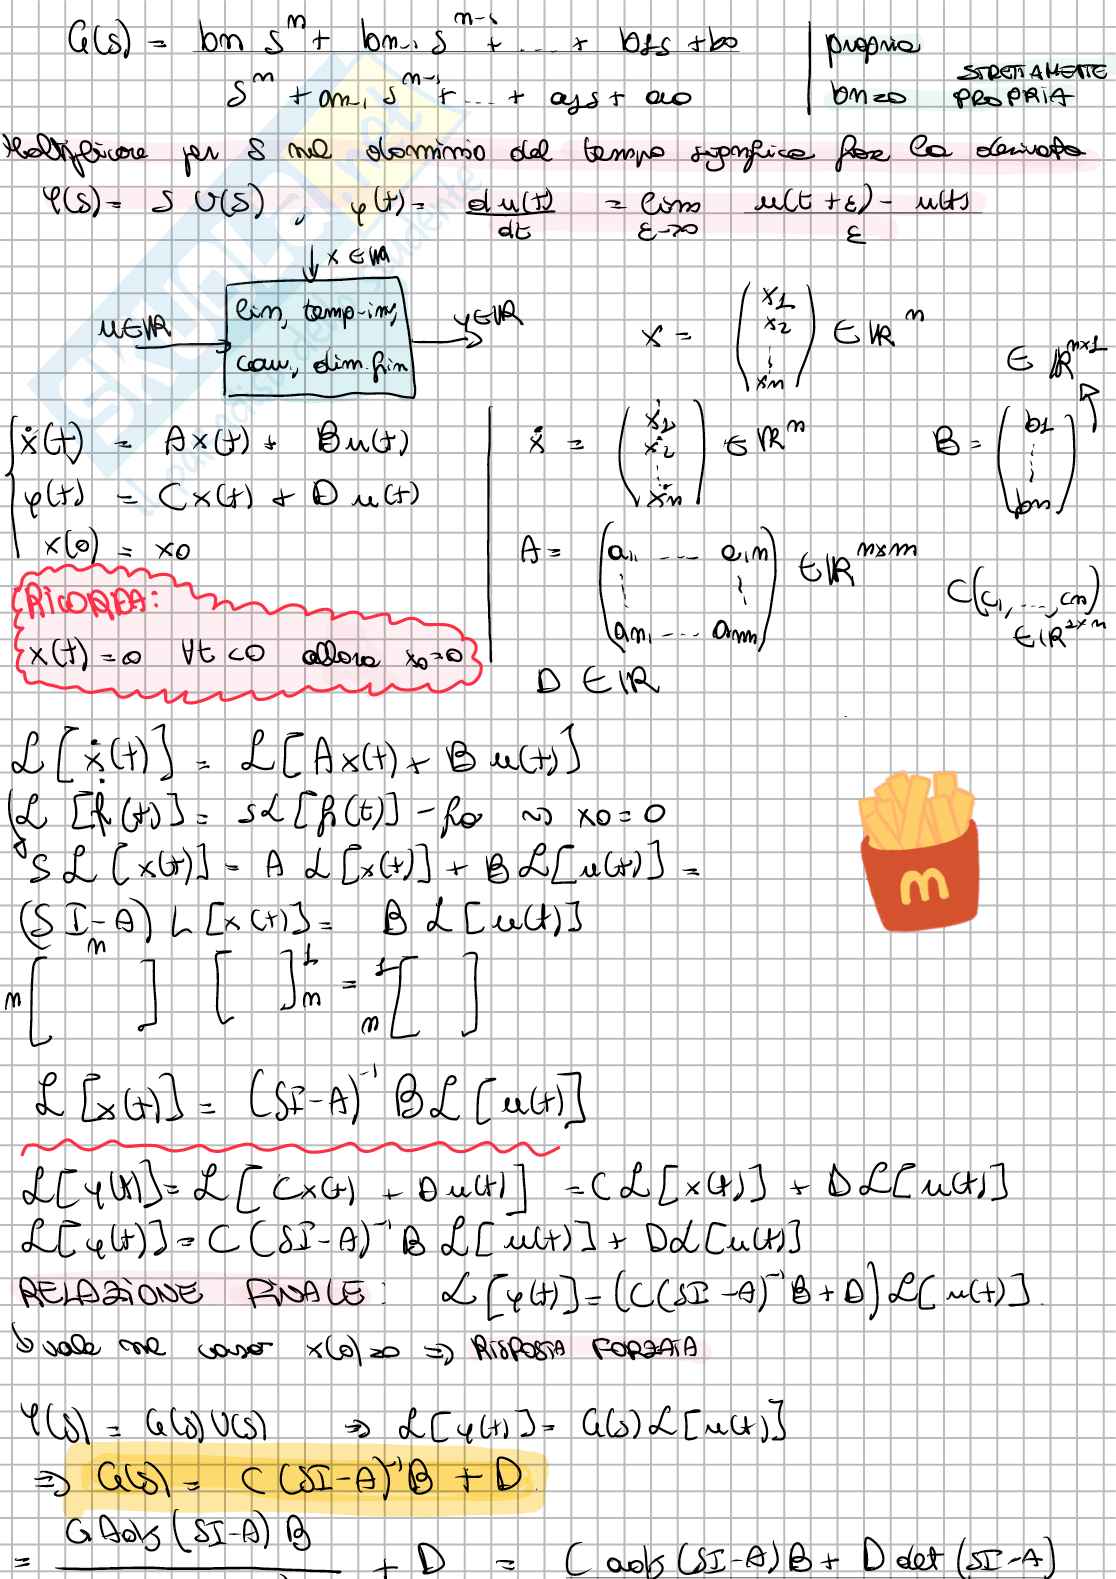 G(s) = bn s^n + bn-1 s^n-1 + ... + b1s + b0 | propria
s^n + an-1 s^n-1 + ... + a1s + a0 | bn=0 STRETTAMENTE PROPRIA
Moltiplicare per s nel dominio del tempo significa fare la derivata
Y(s) = s U(s), y(t) = du(t)/dt = lim ε->0 u(t+ε) - u(t) / ε
↓ x ∈ ℝn
u∈ℝ lin, temp-inv, y∈ℝ
cau, dim.fin
x = (x1 x2 ⋮ xn) ∈ ℝ^n
ẋ(t) = Ax(t) + Bu(t)
y(t) = Cx(t) + Du(t)
x(0) = x0
ẋ = (ẋ1 ẋ2 ⋮ ẋn) ∈ ℝ^n
B = (b1 ⋮ bn) ∈ ℝ^n×1
A = (a11 ... a1n ⋮ ⋮ an1 ... ann) ∈ ℝ^n×n
C(c1, ..., cn) ∈ ℝ^1×n
D ∈ ℝ
RICORDA:
x(t) = 0 ∀t<0 allora x0=0
ℒ[ẋ(t)] = ℒ[Ax(t) + Bu(t)]
(ℒ[ḟ(t)] = sℒ[f(t)] - f0 ⇝ x0 = 0
sℒ[x(t)] = Aℒ[x(t)] + Bℒ[u(t)] =
(sI-A) L[x(t)] = Bℒ[u(t)]
n n [ ] [ ] 1 n = 1 n [ ]
ℒ[x(t)] = (sI-A)^-1 Bℒ[u(t)]
ℒ[y(t)] = ℒ[Cx(t) + Du(t)] = Cℒ[x(t)] + Dℒ[u(t)]
ℒ[y(t)] = C(sI-A)^-1 Bℒ[u(t)] + Dℒ[u(t)]
RELAZIONE FINALE: ℒ[y(t)] = (C(sI-A)^-1 B + D)ℒ[u(t)].
↳ vale nel caso x(0)=0 => RISPOSTA FORZATA
Y(s) = G(s)U(s) => ℒ[y(t)] = G(s)ℒ[u(t)]
=> G(s) = C(sI-A)^-1 B + D
= C Adj(sI-A)B + D = C adj(sI-A)B + D det(sI-A)
m